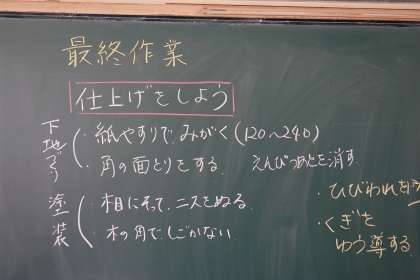 最終作業
仕上げをしよう
下地づくり
・紙やすりで、みがく(120～240)
・角の面とりをする。 えんぴつあとを消す
塗装
・木目にそって、ニスをぬる。
・木の角で、しごかない。
・ひびわれを
・くぎを
ゆう導する